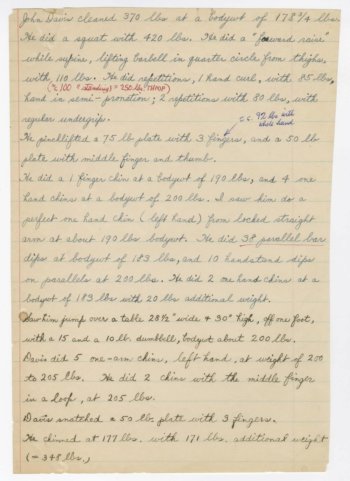 John Davis cleaned 370 lbs at a bodywt of 178 3/4 lbs.
He did a squat with 420 lbs. He did a "forward raise"
while supine, lifting barbell in quarter circle from thighs,
with 110 lbs. He did repetitions, 1 hand curl, with 85 lbs,
(% 100 "standing" = 250 lbs. TMOP)
hand in semi-pronation; 2 repetitions with 80 lbs, with
regular undergrip.
92 lbs with
whole hand
He pinchlifted a 75 lb plate with 3 fingers, and a 50 lb
plate with middle finger and thumb.
He did a 1 finger chin at a bodywt of 190 lbs, and 4 one
hand chins at a bodywt of 200 lbs. I saw him do a
perfect one hand chin (left hand) from locked straight
arm at about 190 lbs bodywt. He did 38 parallel bar
dips at bodywt of 183 lbs, and 10 handstand dips
on parallels at 200 lbs. He did 2 one hand chins at a
bodywt of 183 lbs with 20 lbs additional weight.
Saw him jump over a table 28 1/2" wide & 30" high, off one foot,
with a 15 and a 10 lb. dumbbell, bodywt about 200 lbs.
Davis did 5 one-arm chins, left hand, at weight of 200
to 205 lbs. He did 2 chins with the middle finger
in a loop, at 205 lbs.
Davis snatched a 50 lb. plate with 3 fingers.
He chinned at 177 lbs. with 171 lbs. additional weight
(= 348 lbs.)